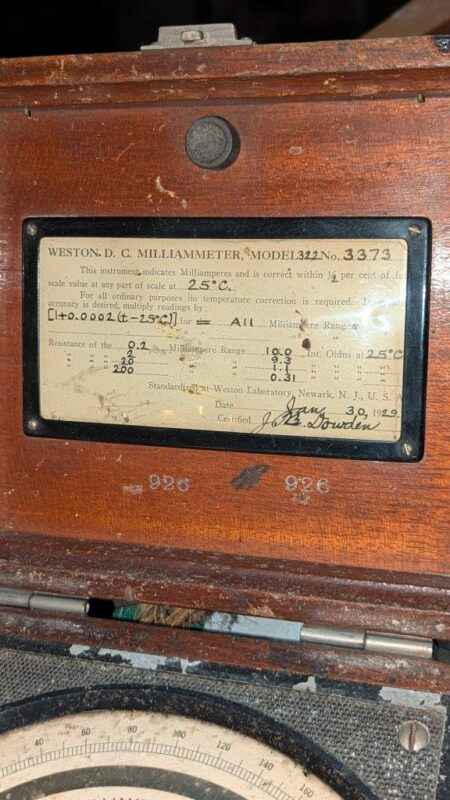 WESTON D. C. MILLIAMMETER, MODEL 322 No. 3373
This instrument indicates Milliamperes and is correct within per cent of
scale value at any part of scale at 25°C.
For all ordinary purposes no temperature correction is required.
accuracy is desired, multiply readings by
[1+0.0002(t-25°C)] for = All Milliampere Ranges
Resistance of the 0.2 Milliampere Range 10.0 Int. Ohms at 25°C
" " " 2 " " 9.3 " " " "
" " " 20 " " 1.1 " " " "
" " " 200 " " 0.31 " " " "
Standardized at Weston Laboratory, Newark, N. J., U. S. A
Date Jan. 30, 1929
Certified J. B. Dowden
926 926
40 60 80 100 120 140 160